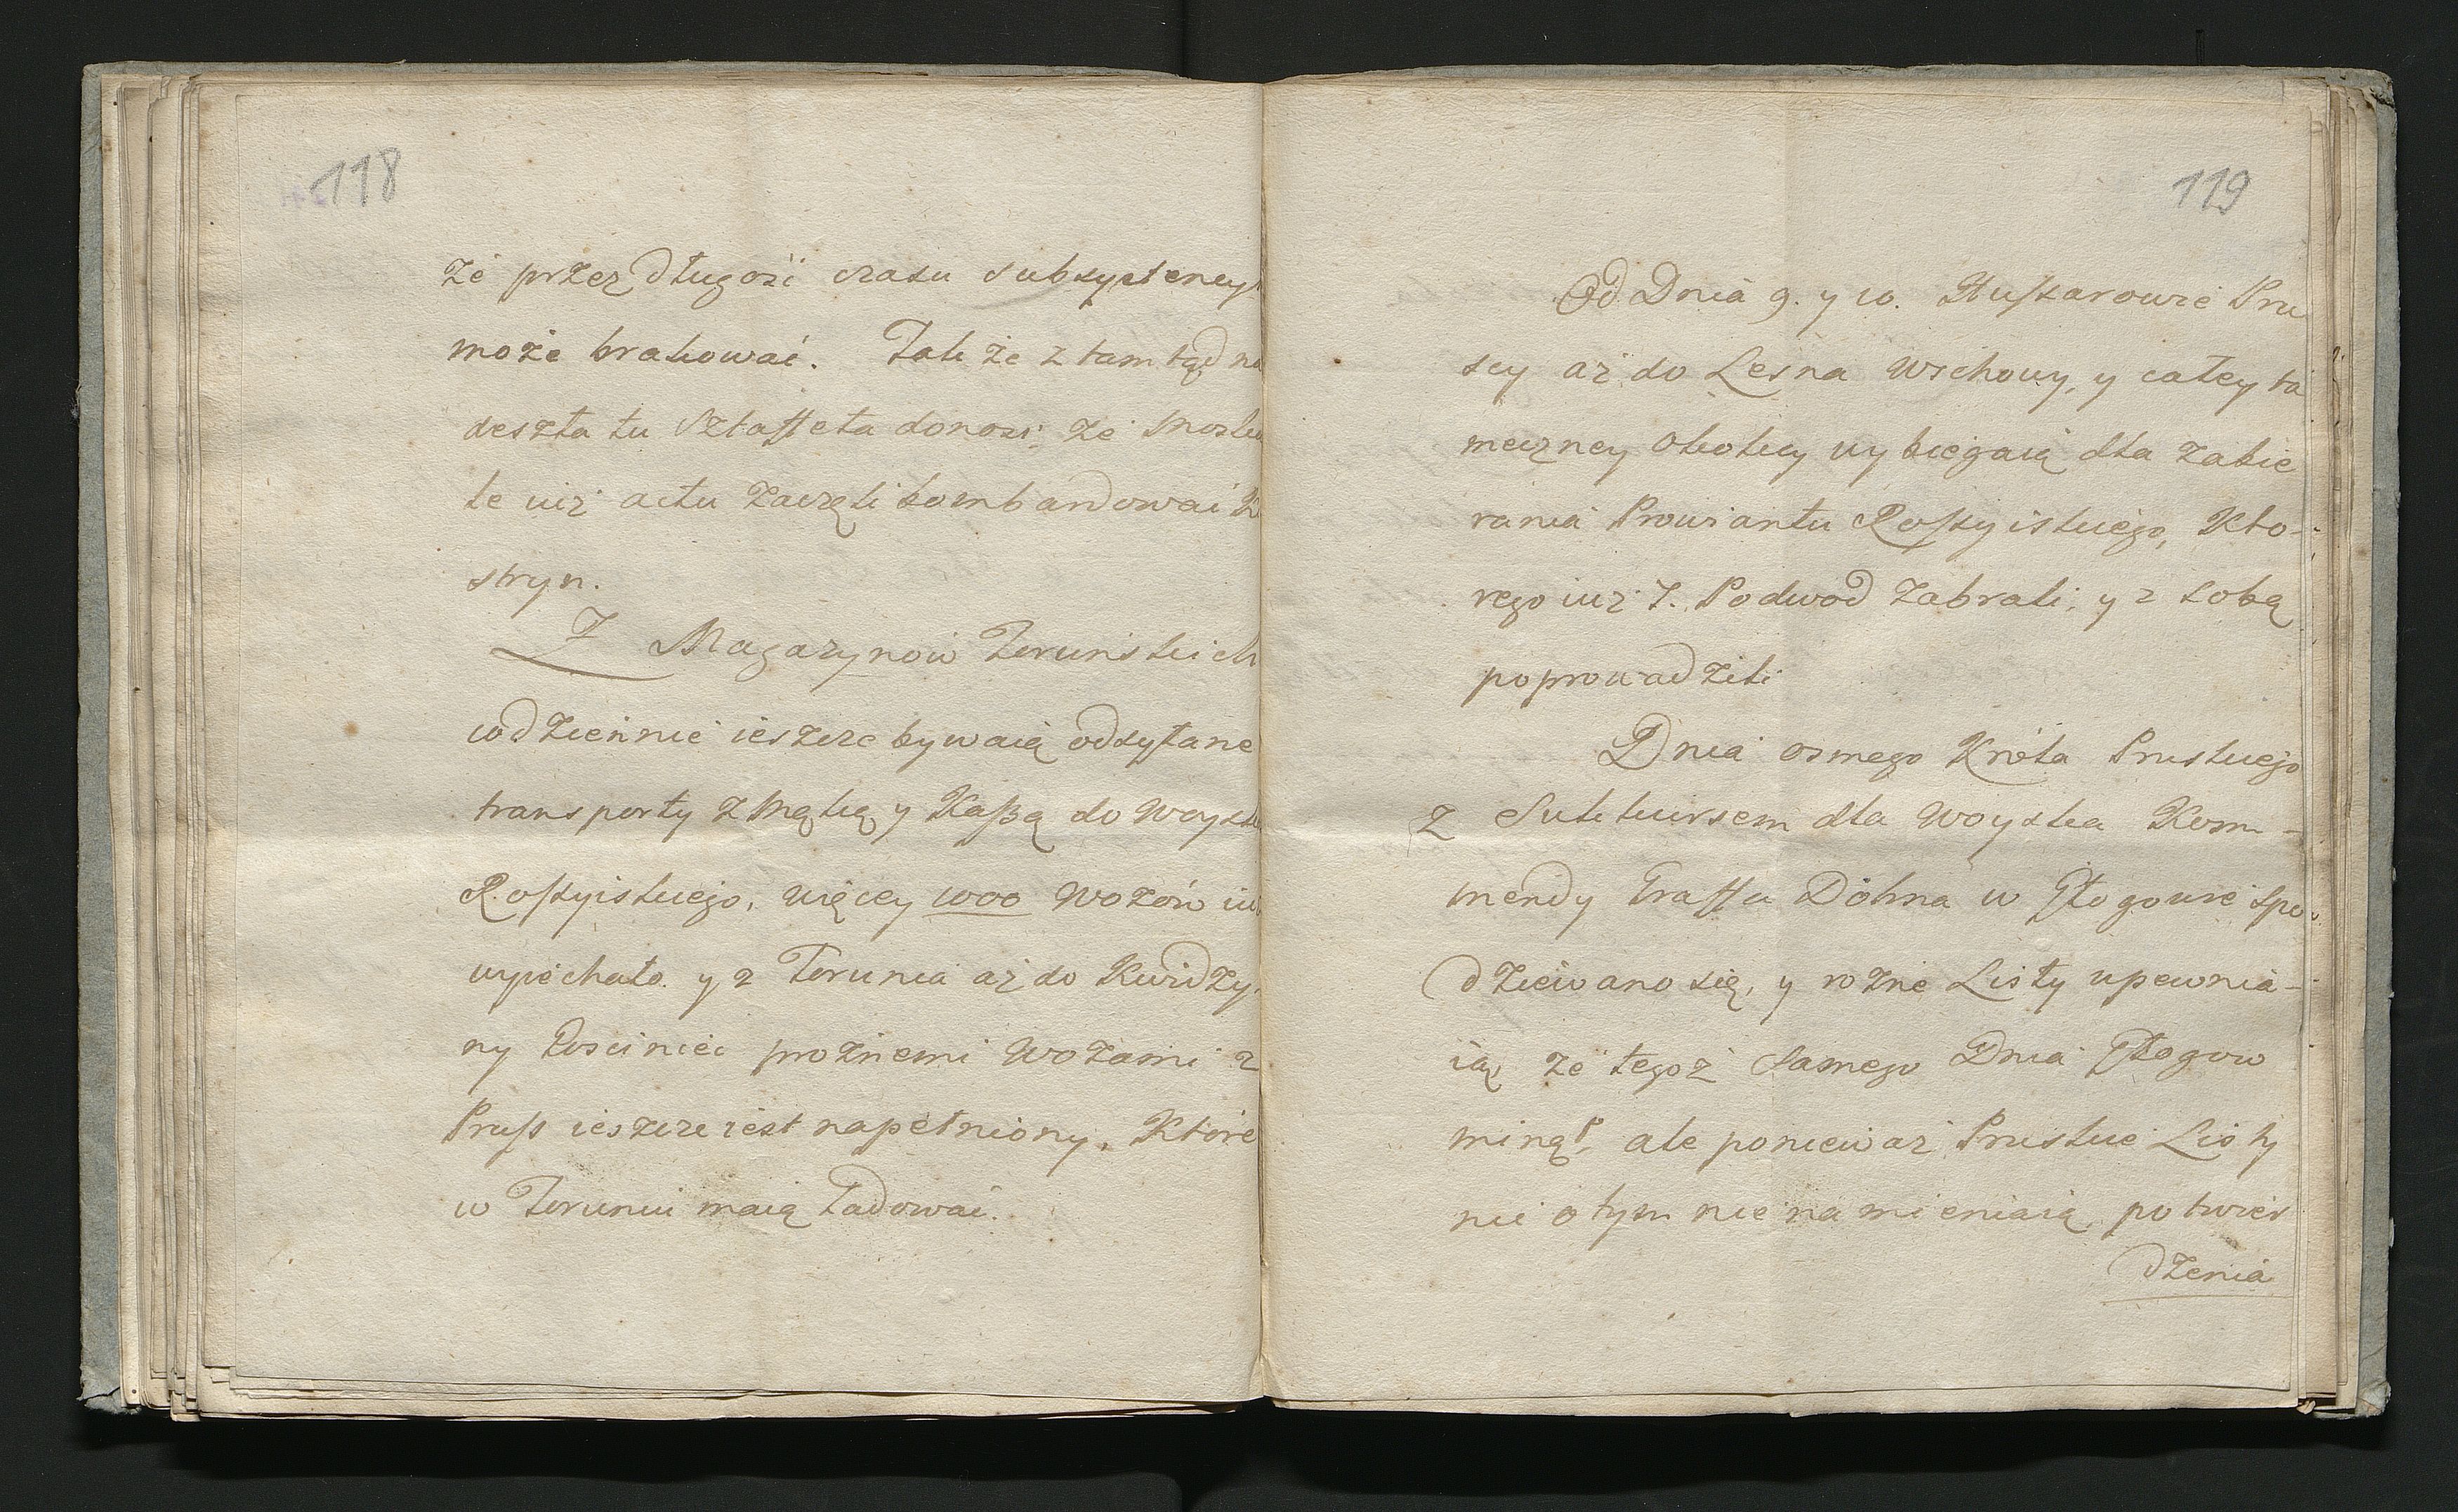 118
że przez długość czasu subsystencyi
może brakować. Także z tamtąd na
deszła tu Sztaffeta donosi, że Moskie
le iuż actu zaczęli bombardowac K
stryn.
Z Magazynow Toruńskich
codziennie ieszcze bywaią odsyłane
transporty z Mąką y Kaszą do Woyska
Rossyiskiego, więcey 1000 Wozów iuż
wyiechało y z Torunia aż do Kwidzy
ny Gosciniec prożnemi Wozami z
Pruss ieszcze iest napełniony, Które
w Toruniu maią ładować.
119
Od Dnia 9. y 10. Hussarowie Pru
scy aż do Lesna Wschowy, y całey ta
meczney Okolicy wybiegaią dla zabie
rania Prowiantu Rossyiskiego, Kto-
rego iuż 7. Podwod zabrali, y z sobą
poprowadzili
Dnia osmego Króla Pruskiego
z Sukkursem dla Woyska Kom-
mendy Graffa Dohna w Głogowie spo
dziewano się, y rożne Listy upewnia-
ią że tegoż samego Dnia Głogow
minął, ale ponieważ Pruskie Listy
nic o tym nie namieniaią, potwier
dzenia